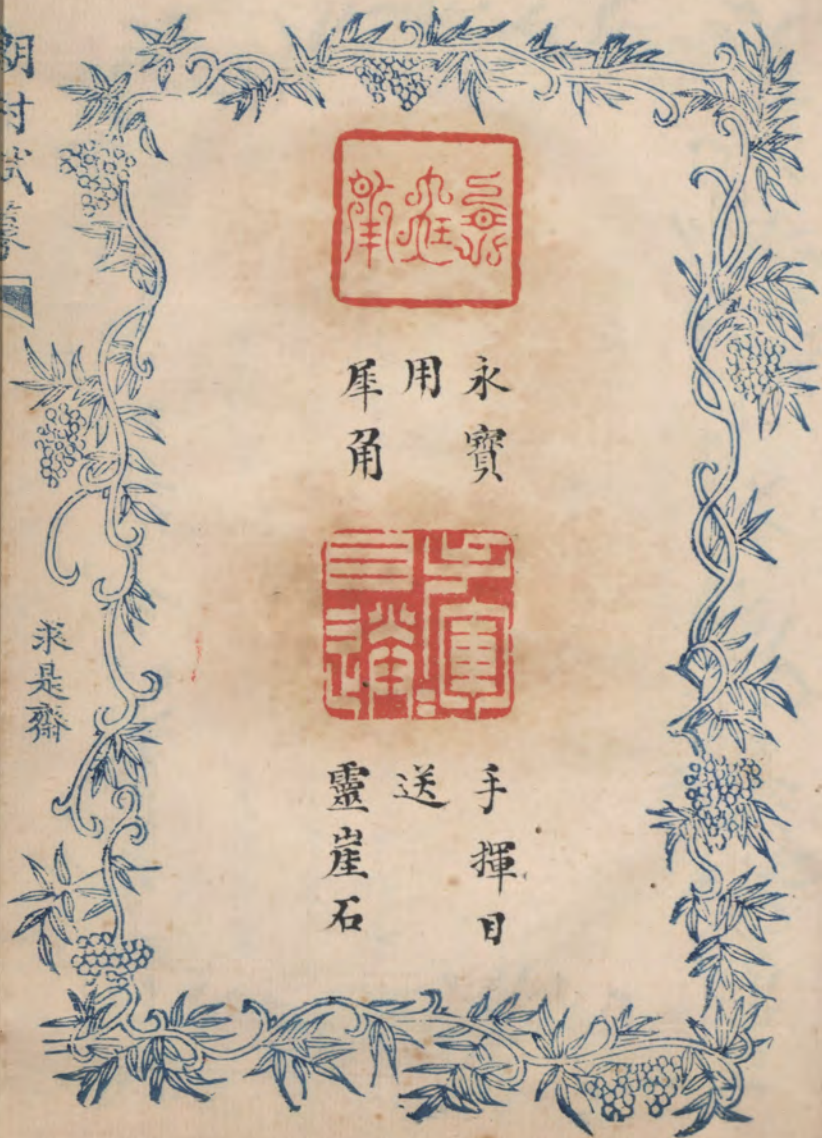 永寶
用
犀角
手揮
目送
手揮目
送
靈崖石
村試篆
求是齋